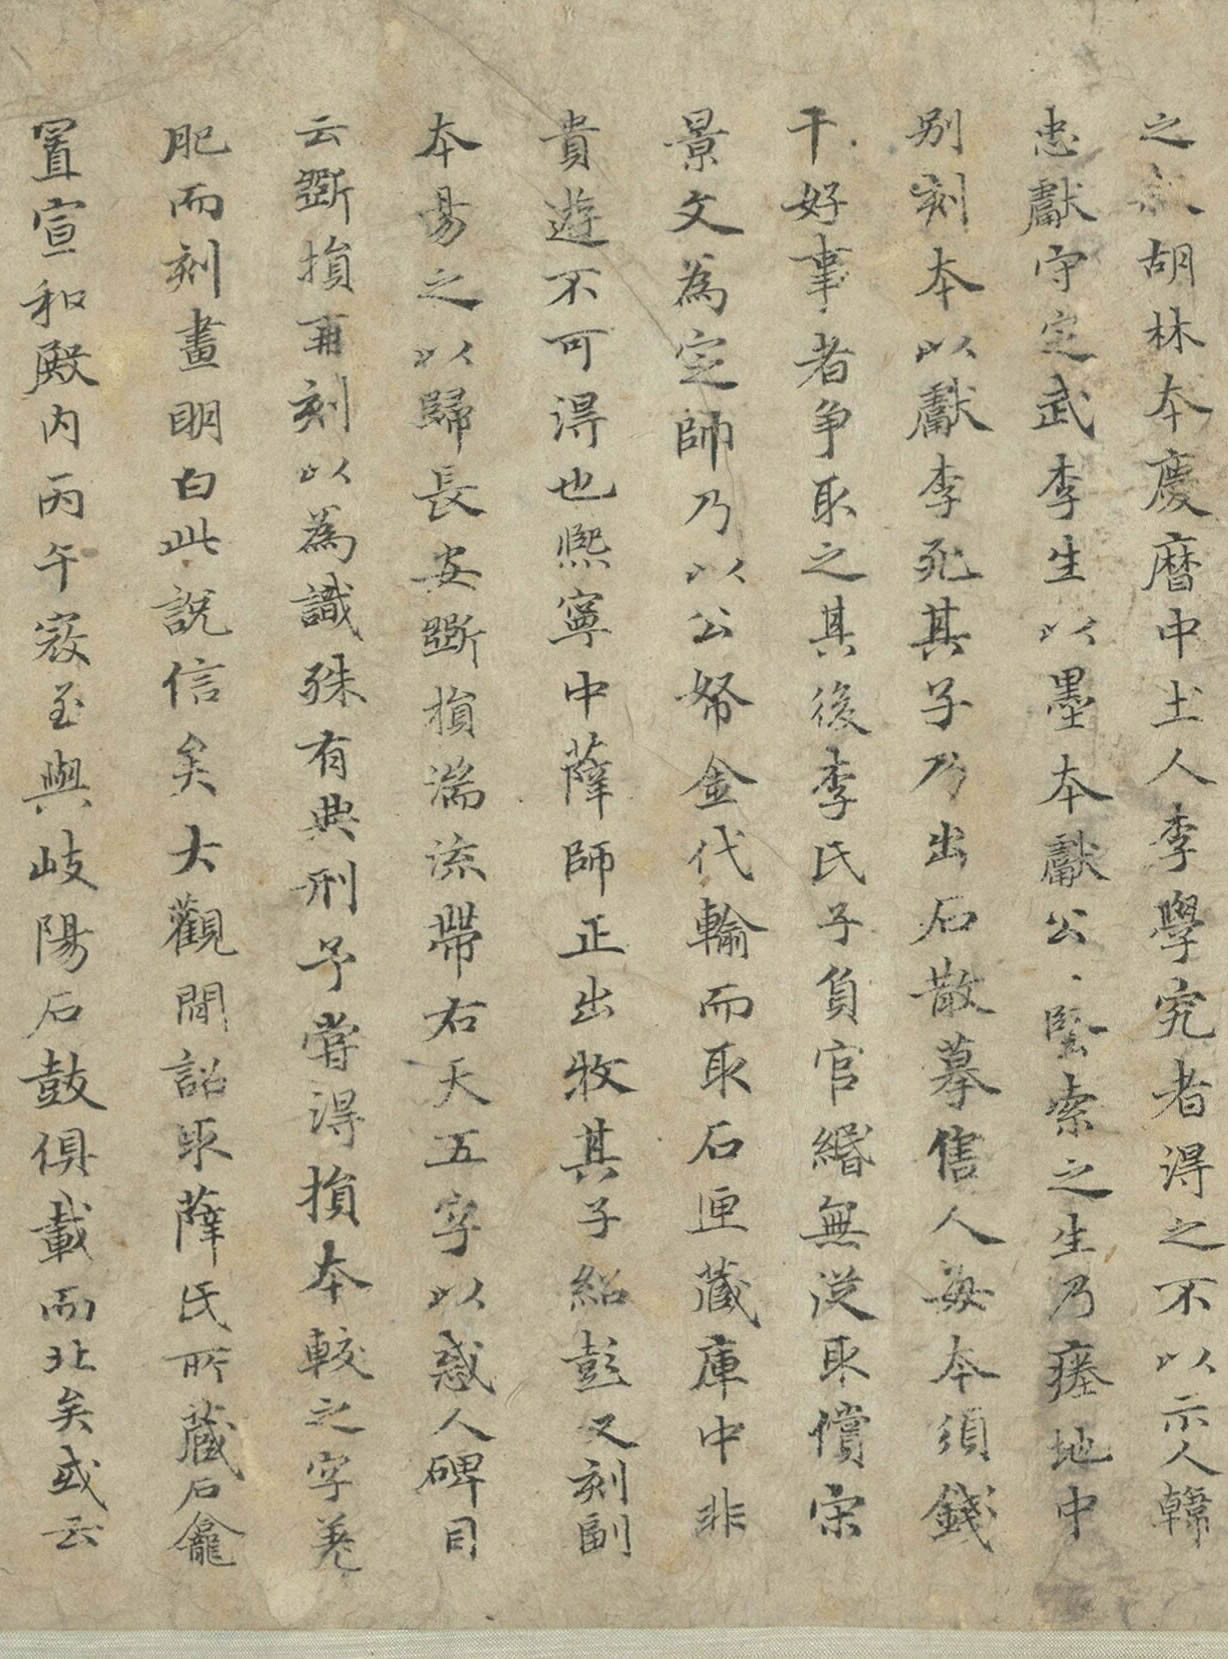 之 胡林本慶曆中士人李學究者得之不以示人韓
忠獻守定武李生以墨本獻公、堅索之生乃瘞地中
别刻本以獻李死其子乃出石散摹售人每本須錢
千好事者争取之其後李氏子負官緡無從取償宋
景文為定帥乃以公帑金代輸而取石匣藏庫中非
貴遊不可得也熙寧中薛師正出牧其子紹彭又刻副
本易之以歸長安斲損湍流帶右天五字以惑人碑目
云斲損再刻以為識殊有典刑予嘗得損本較之字差
肥而刻畫明白此說信矣大觀間詔取薛氏所蔵石龕
置宣和殿内丙午寇至與岐陽石鼓俱載而北矣或云